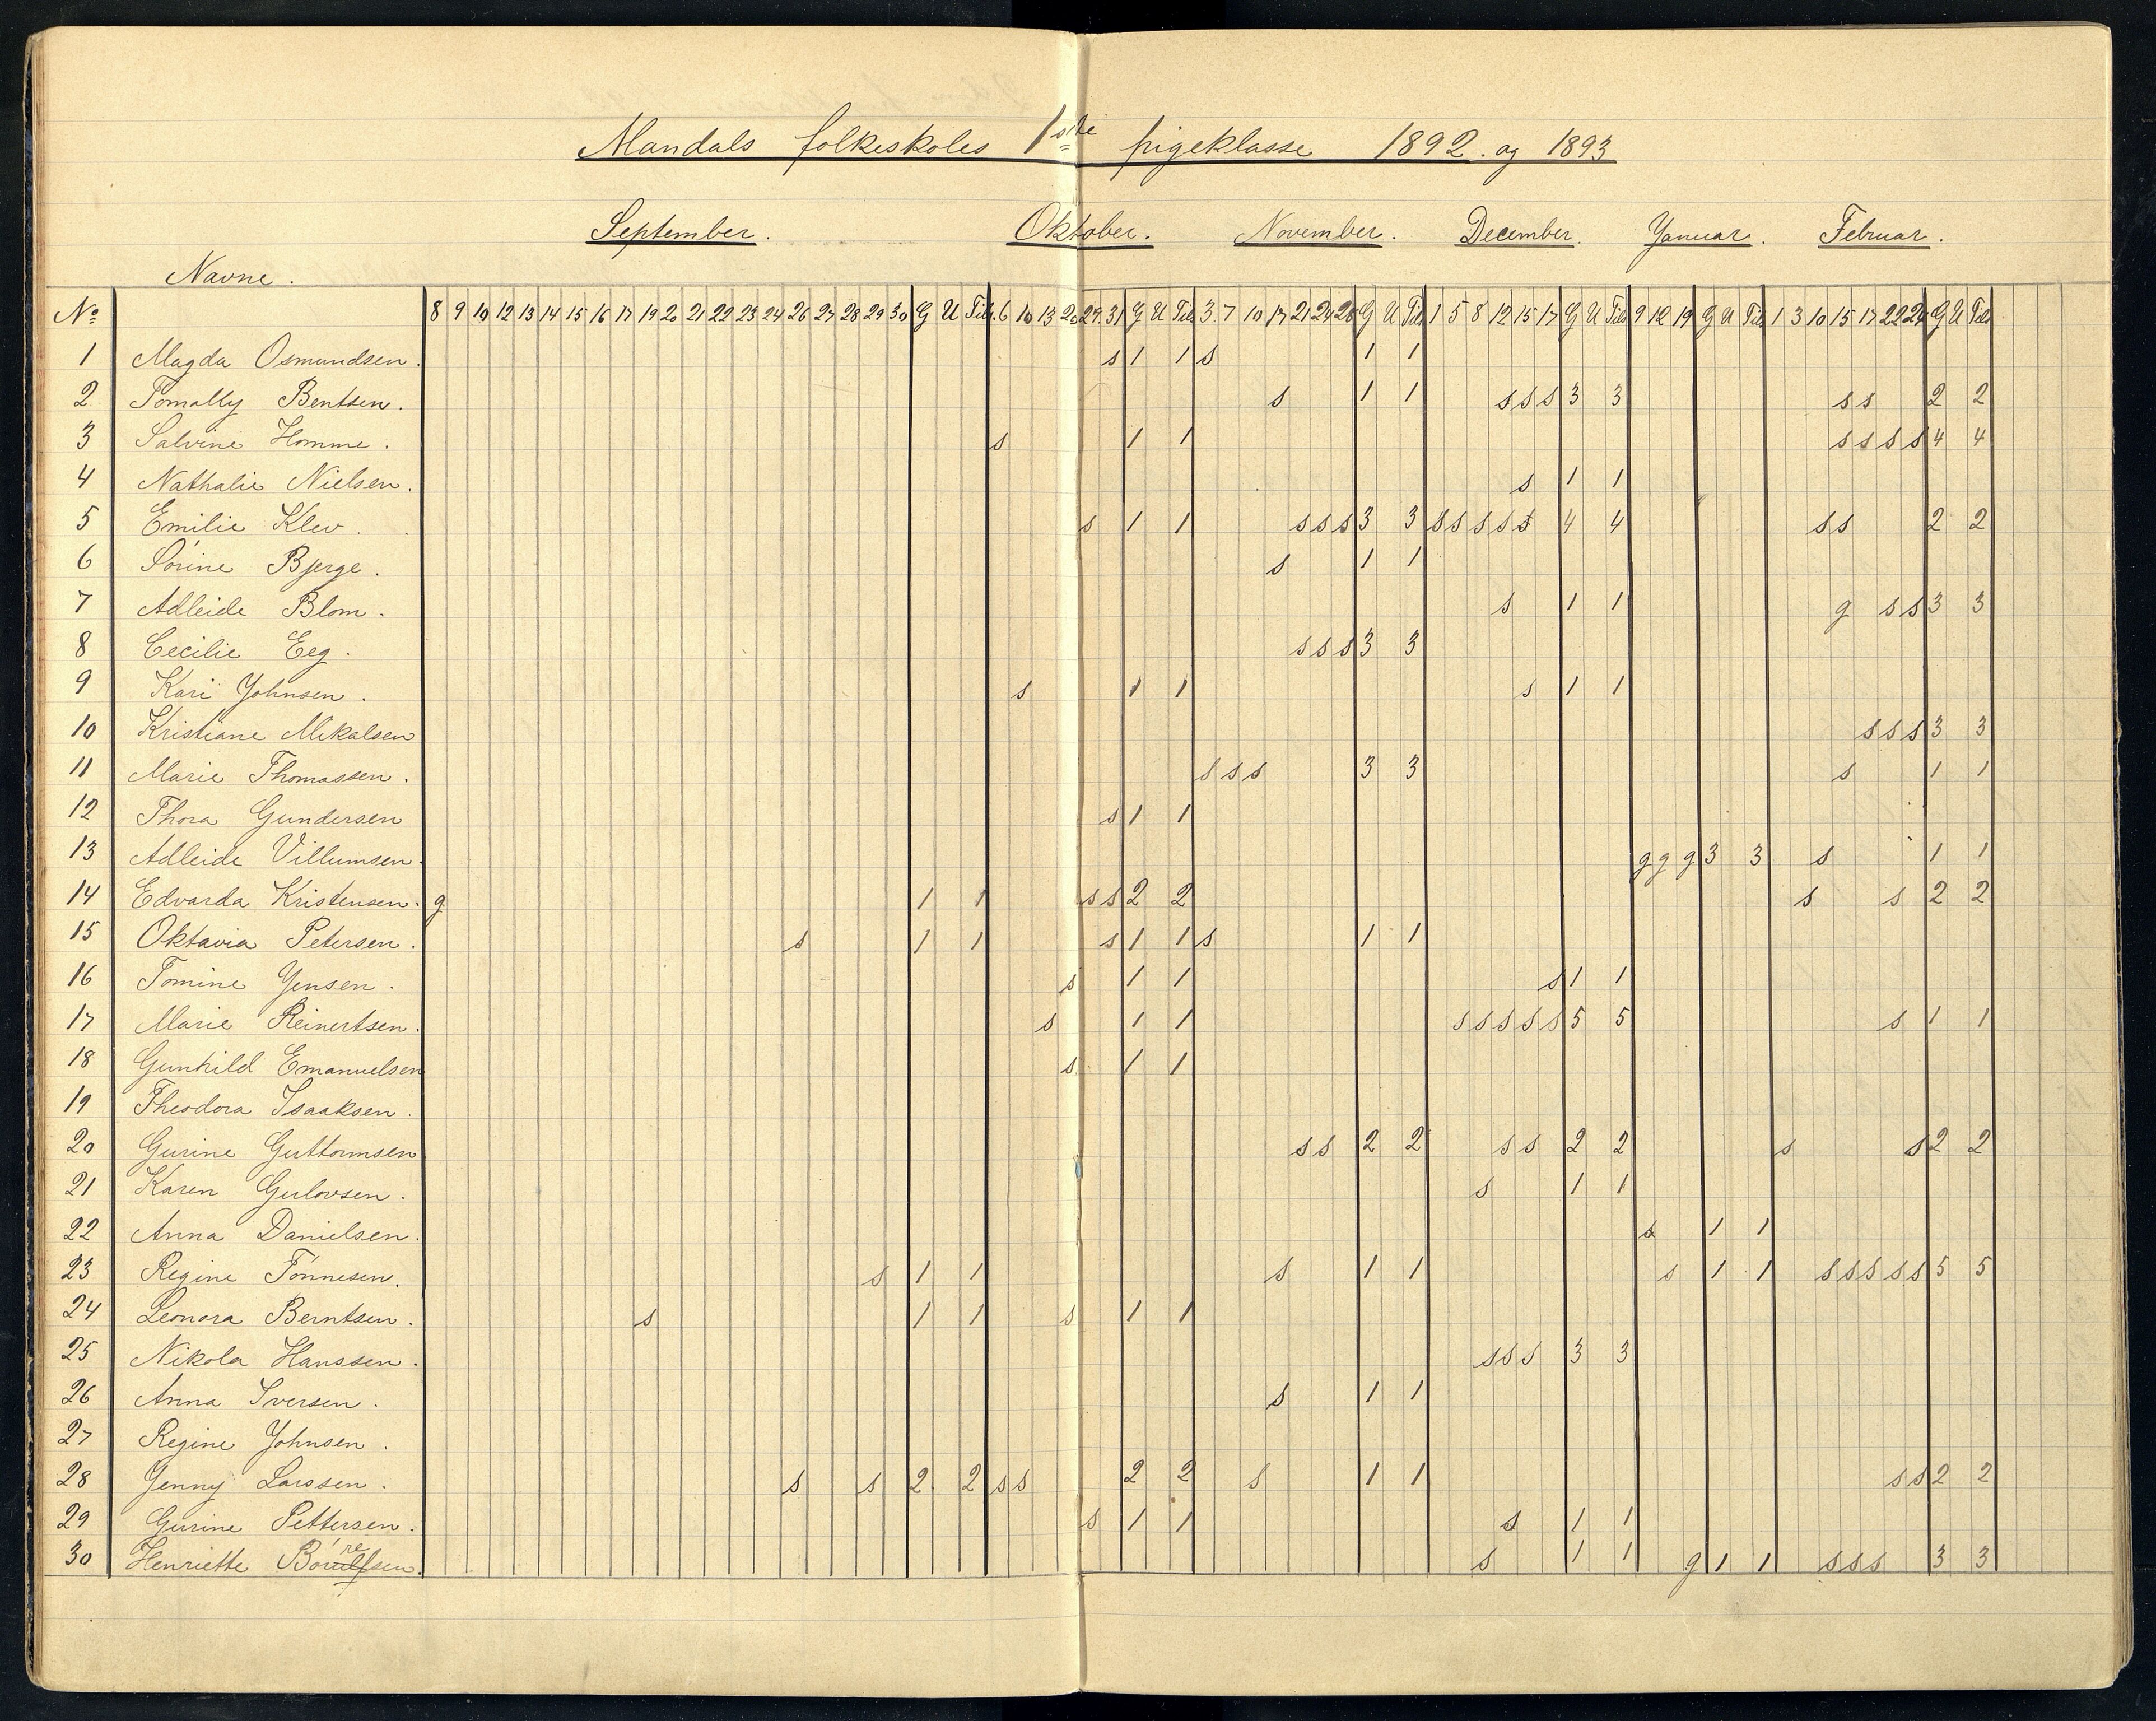 Mandals folkeskoles 1ste pigeklasse 1892 og 1893
September. Oktober. November. December. Januar. Februar.
Navne.
No 8 9 10 12 13 14 15 16 17 19 20 21 22 23 24 26 27 28 29 30 G U Tils. 6 10 13 20 27. 31 G U Tils 3. 7 10 17 21 24 28 G U Tils 1 5 8 12 15 17 G U Tils 9 12 19 G U Tils 1 3 10 15 17 22 24 G U Tils
1 Magda Osmundsen. s 1 1 s 1 1
2 Tomally Bentsen. s 1 1 s s s 3 3 s s 2 2
3 Salvine Homme. s 1 1 s s s s 4 4
4 Nathalie Nielsen. s 1 1
5 Emilie Klev. s 1 1 s s s 3 3 s s s s s 4 4 s s 2 2
6 Sørine Bjerge. s 1 1
7 Adleide Blom. s 1 1 g s s 3 3
8 Cecilie Eeg. s s s 3 3
9 Kari Johnsen. s 1 1 s 1 1
10 Kristiane Mikalsen s s s 3 3
11 Marie Thomassen. s s s 3 3 s 1 1
12 Thora Gundersen s 1 1
13 Adleide Villumsen. g g g 3 3 s 1 1
14 Edvarda Kristensen. g 1 1 s s 2 2 s s 2 2
15 Oktavia Petersen. s 1 1 s 1 1 s 1 1
16 Tomine Jensen. s 1 1 s 1 1
17 Marie Reinertsen. s 1 1 s s s s s 5 5 s 1 1
18 Gunhild Emanuelsen s 1 1
19 Theodora Isaaksen.
20 Gurine Guttormsen s s 2 2 s s 2 2 s s 2 2
21 Karen Gulovsen. s 1 1
22 Anna Danielsen. s 1 1
23 Regine Tønnesen. s 1 1 s 1 1 s 1 1 s s s s s 5 5
24 Leonora Berntsen. s 1 1 s 1 1
25 Nikola Hanssen. s s s 3 3
26 Anna Iversen. s 1 1
27 Regine Johnsen.
28 Jenny Larssen. s s 2 2 s s 2 2 s 1 1 s s 2 2
29 Gurine Pettersen. s 1 1 s 1 1
30 Henriette s 1 1 g 1 1 s s s 3 3